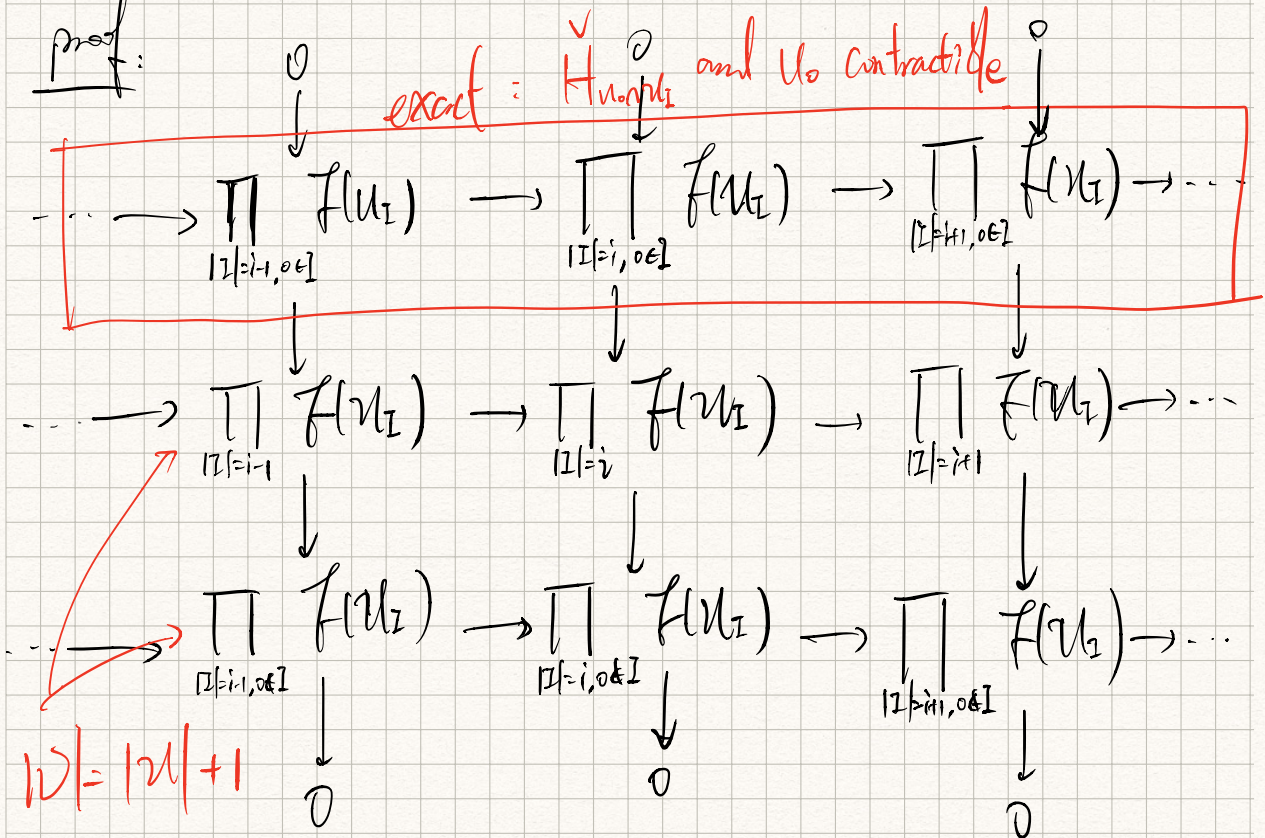 proof:
0 0 0
exact : Ȟ_{U_0∩U_I} and U_0 contractible
··· → ∏_{|I|=i-1, 0∈I} F(U_I) → ∏_{|I|=i, 0∈I} F(U_I) → ∏_{|I|=i+1, 0∈I} F(U_I) → ···
··· → ∏_{|I|=i-1} F(U_I) → ∏_{|I|=i} F(U_I) → ∏_{|I|=i+1} F(U_I) → ···
··· → ∏_{|I|=i-1, 0∉I} F(U_I) → ∏_{|I|=i, 0∉I} F(U_I) → ∏_{|I|=i+1, 0∉I} F(U_I) → ···
|V| = |U| + 1
0 0 0